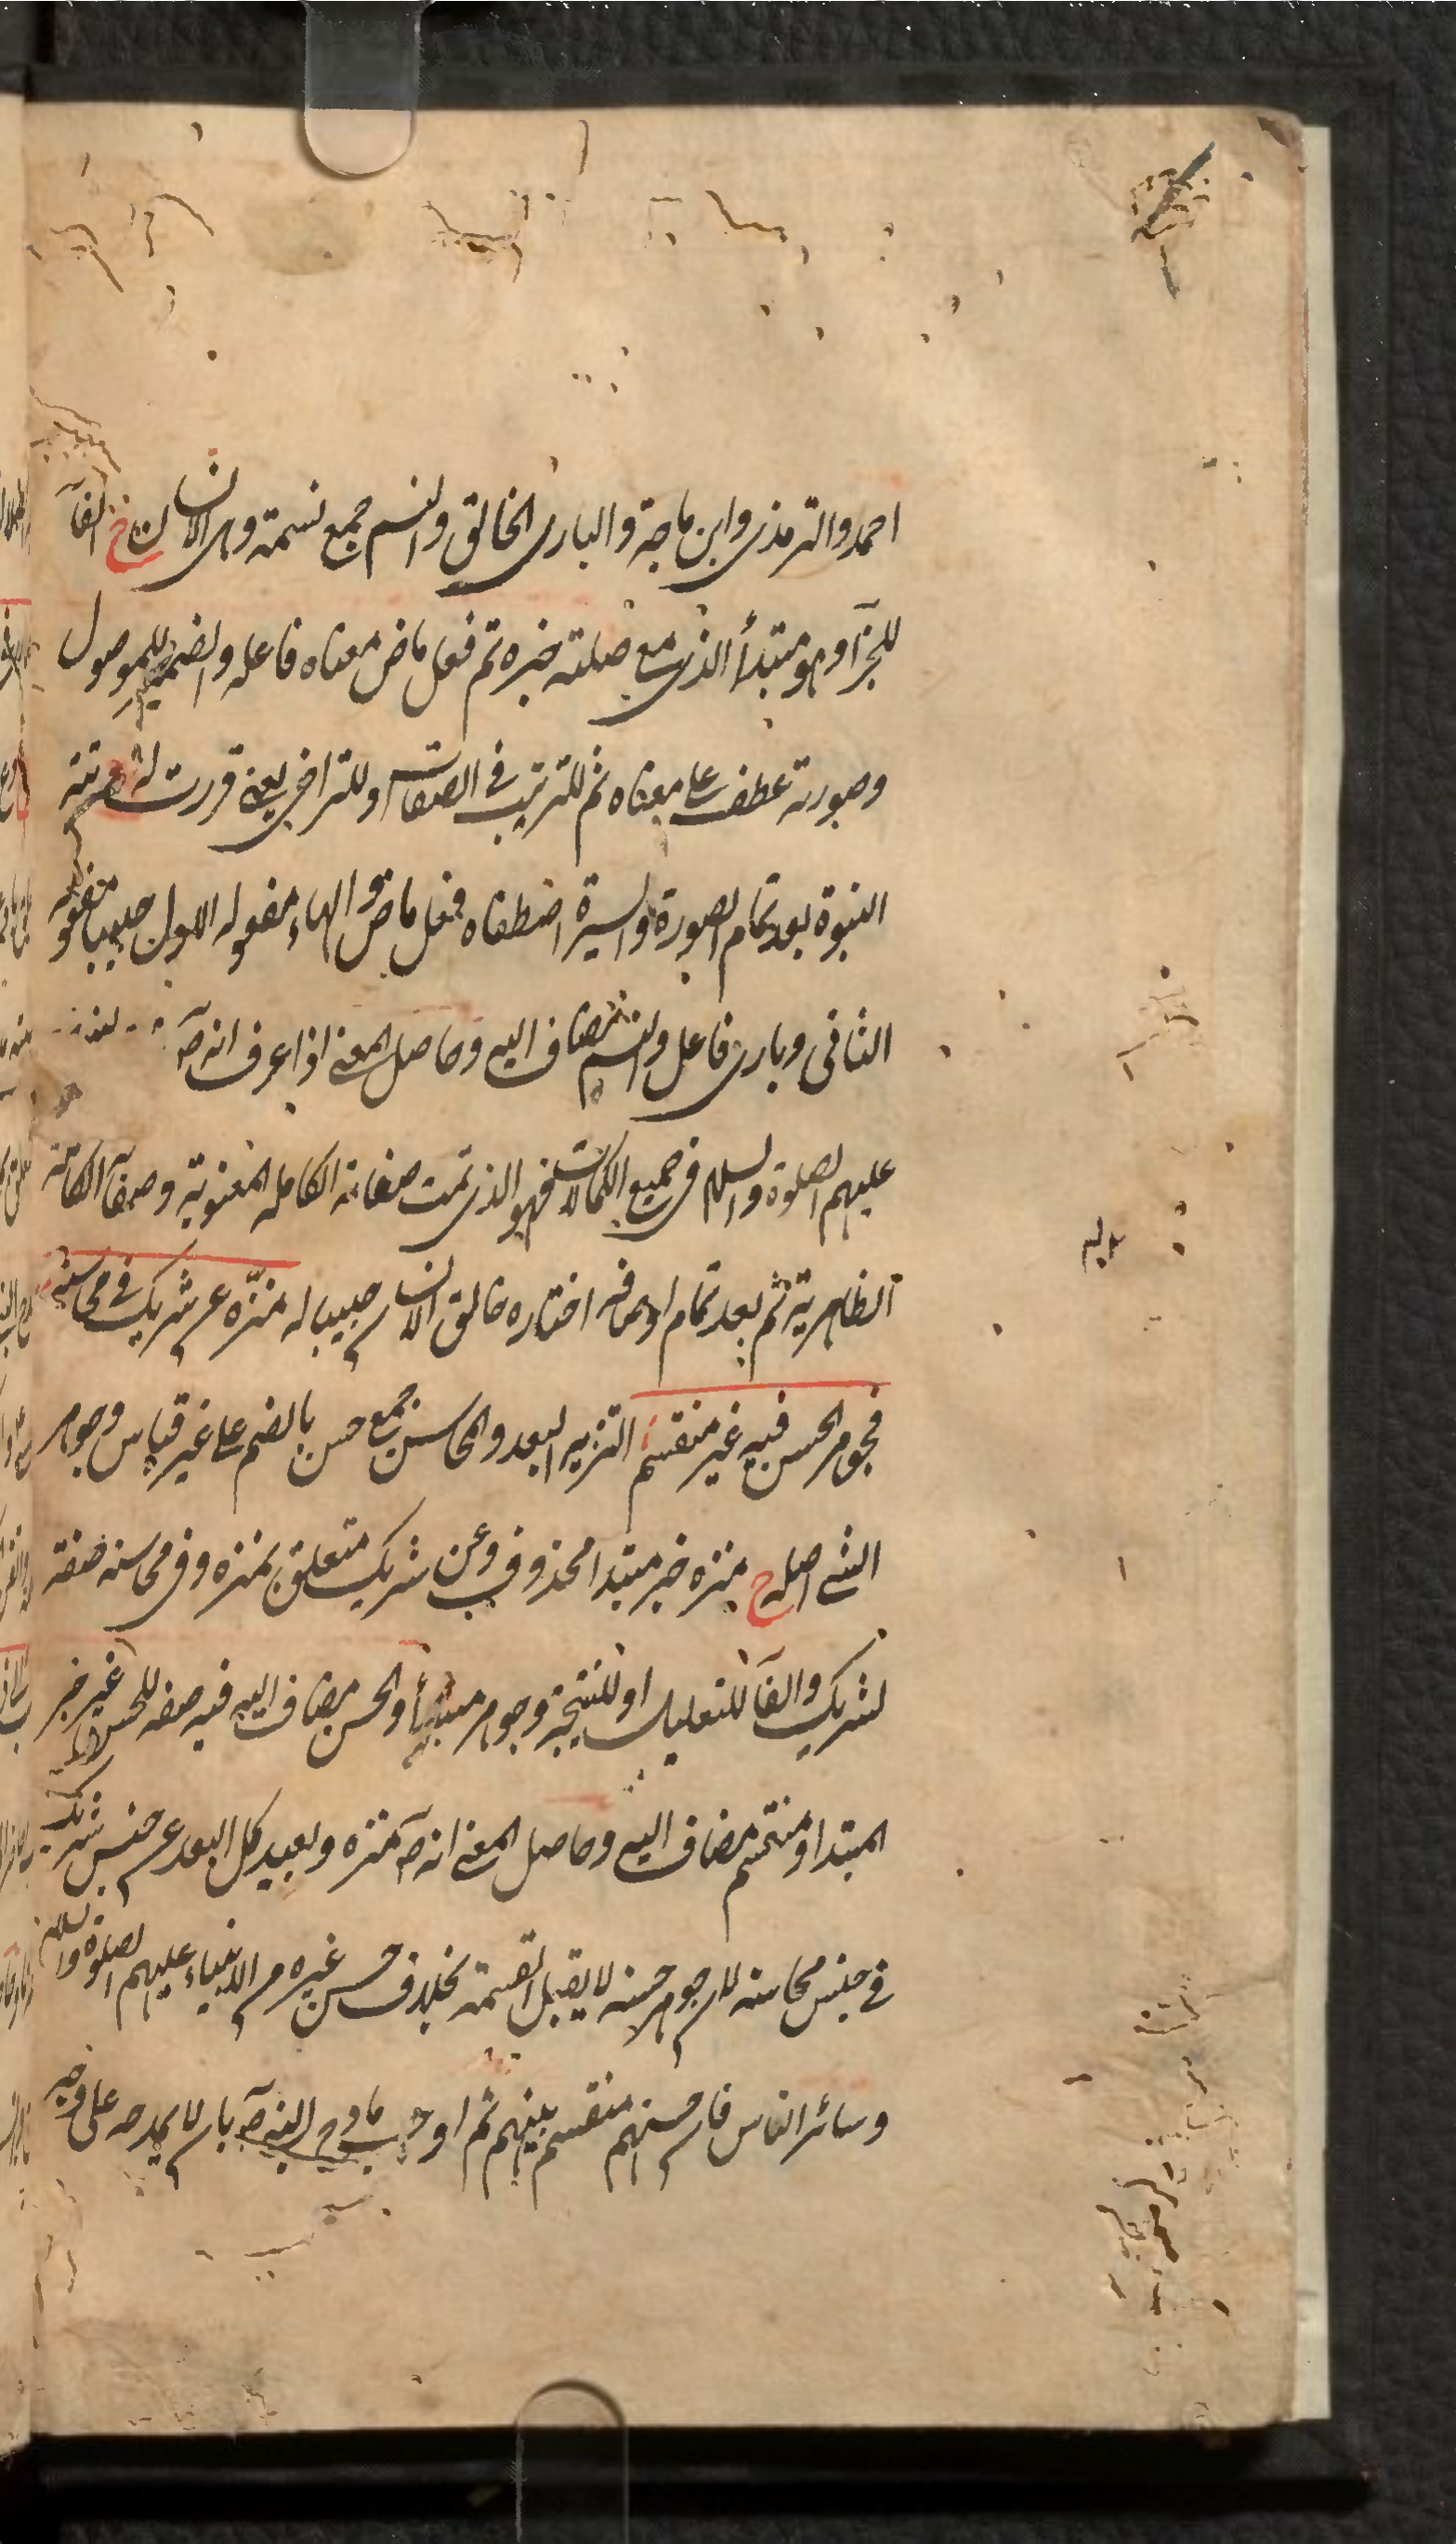 احمد والترمذى وابن ماجة والبارى الخالق والنسم جمع نسمة وهى الانسان ح الفآ
للجزآ وهو مبتدأ الذى مع صلته خبره تم فعل ماض معناه فاعله والضمير للموصول
وصورته عطف على معناه ثم للترتيب فى الصفات او للتراخى يعنى قررت له مرتبة
النبوة بعد تمام الصورة والسيرة اصطفاه فعل ماض والهاء مفعوله الاول حبيبا مفعوله
الثانى وبارى فاعل والنسم مضاف اليه وحاصل المعنى اذا عرف انه صآ
عليهم الصلوة والسلام فى جميع الكمالات فهو الذى تمت صفاته الكامله المعنوية وصفآ الكائنة
الظاهرية ثم بعد تمام اوصافه اختاره خالق الانسان حبيبا له منزّه عن شريك فى محاسنه
فجوهر الحسن فيه غير منقسم التنزيه البعد والمحاسن جمع حسن بالضم على غير قياس وجوهر
الشئ اصله ح منزه خبر مبتدا محذوف وعن شريك متعلق بمنزه وفى محاسنه صفة
لشريك والفآ للتعليل او للنتيجة وجوهر مبتدأ والحسن مضاف اليه فيه صفه للحسن غير خبر
المبتدا ومنقسم مضاف اليه وحاصل المعنى انه صآ منزه وبعيد كل البعد عن جنس شريك
فى جنس محاسنه لان جوهر حسنه لا يقبل القسمة بخلاف حسن غيره من الانبياء عليهم الصلوة والسلام
وسائر الناس فان حسنهم منقسم بينهم ثم اوجب مادح النبى صآ بان لا يمدحه على وجه